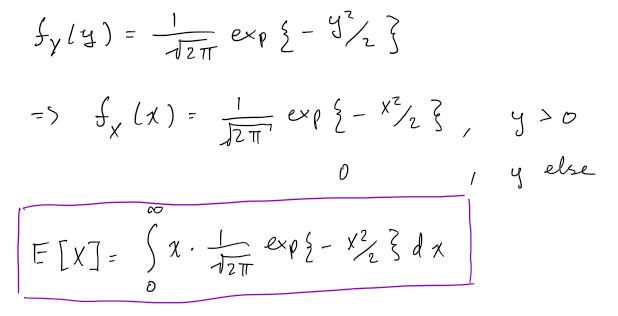 f_Y(y) = 1/√2π exp{- y²/2}
=> f_X(x) = 1/√2π exp{- x²/2}, y > 0
0, y else
E[X] = ∫₀^∞ x · 1/√2π exp{- x²/2} dx